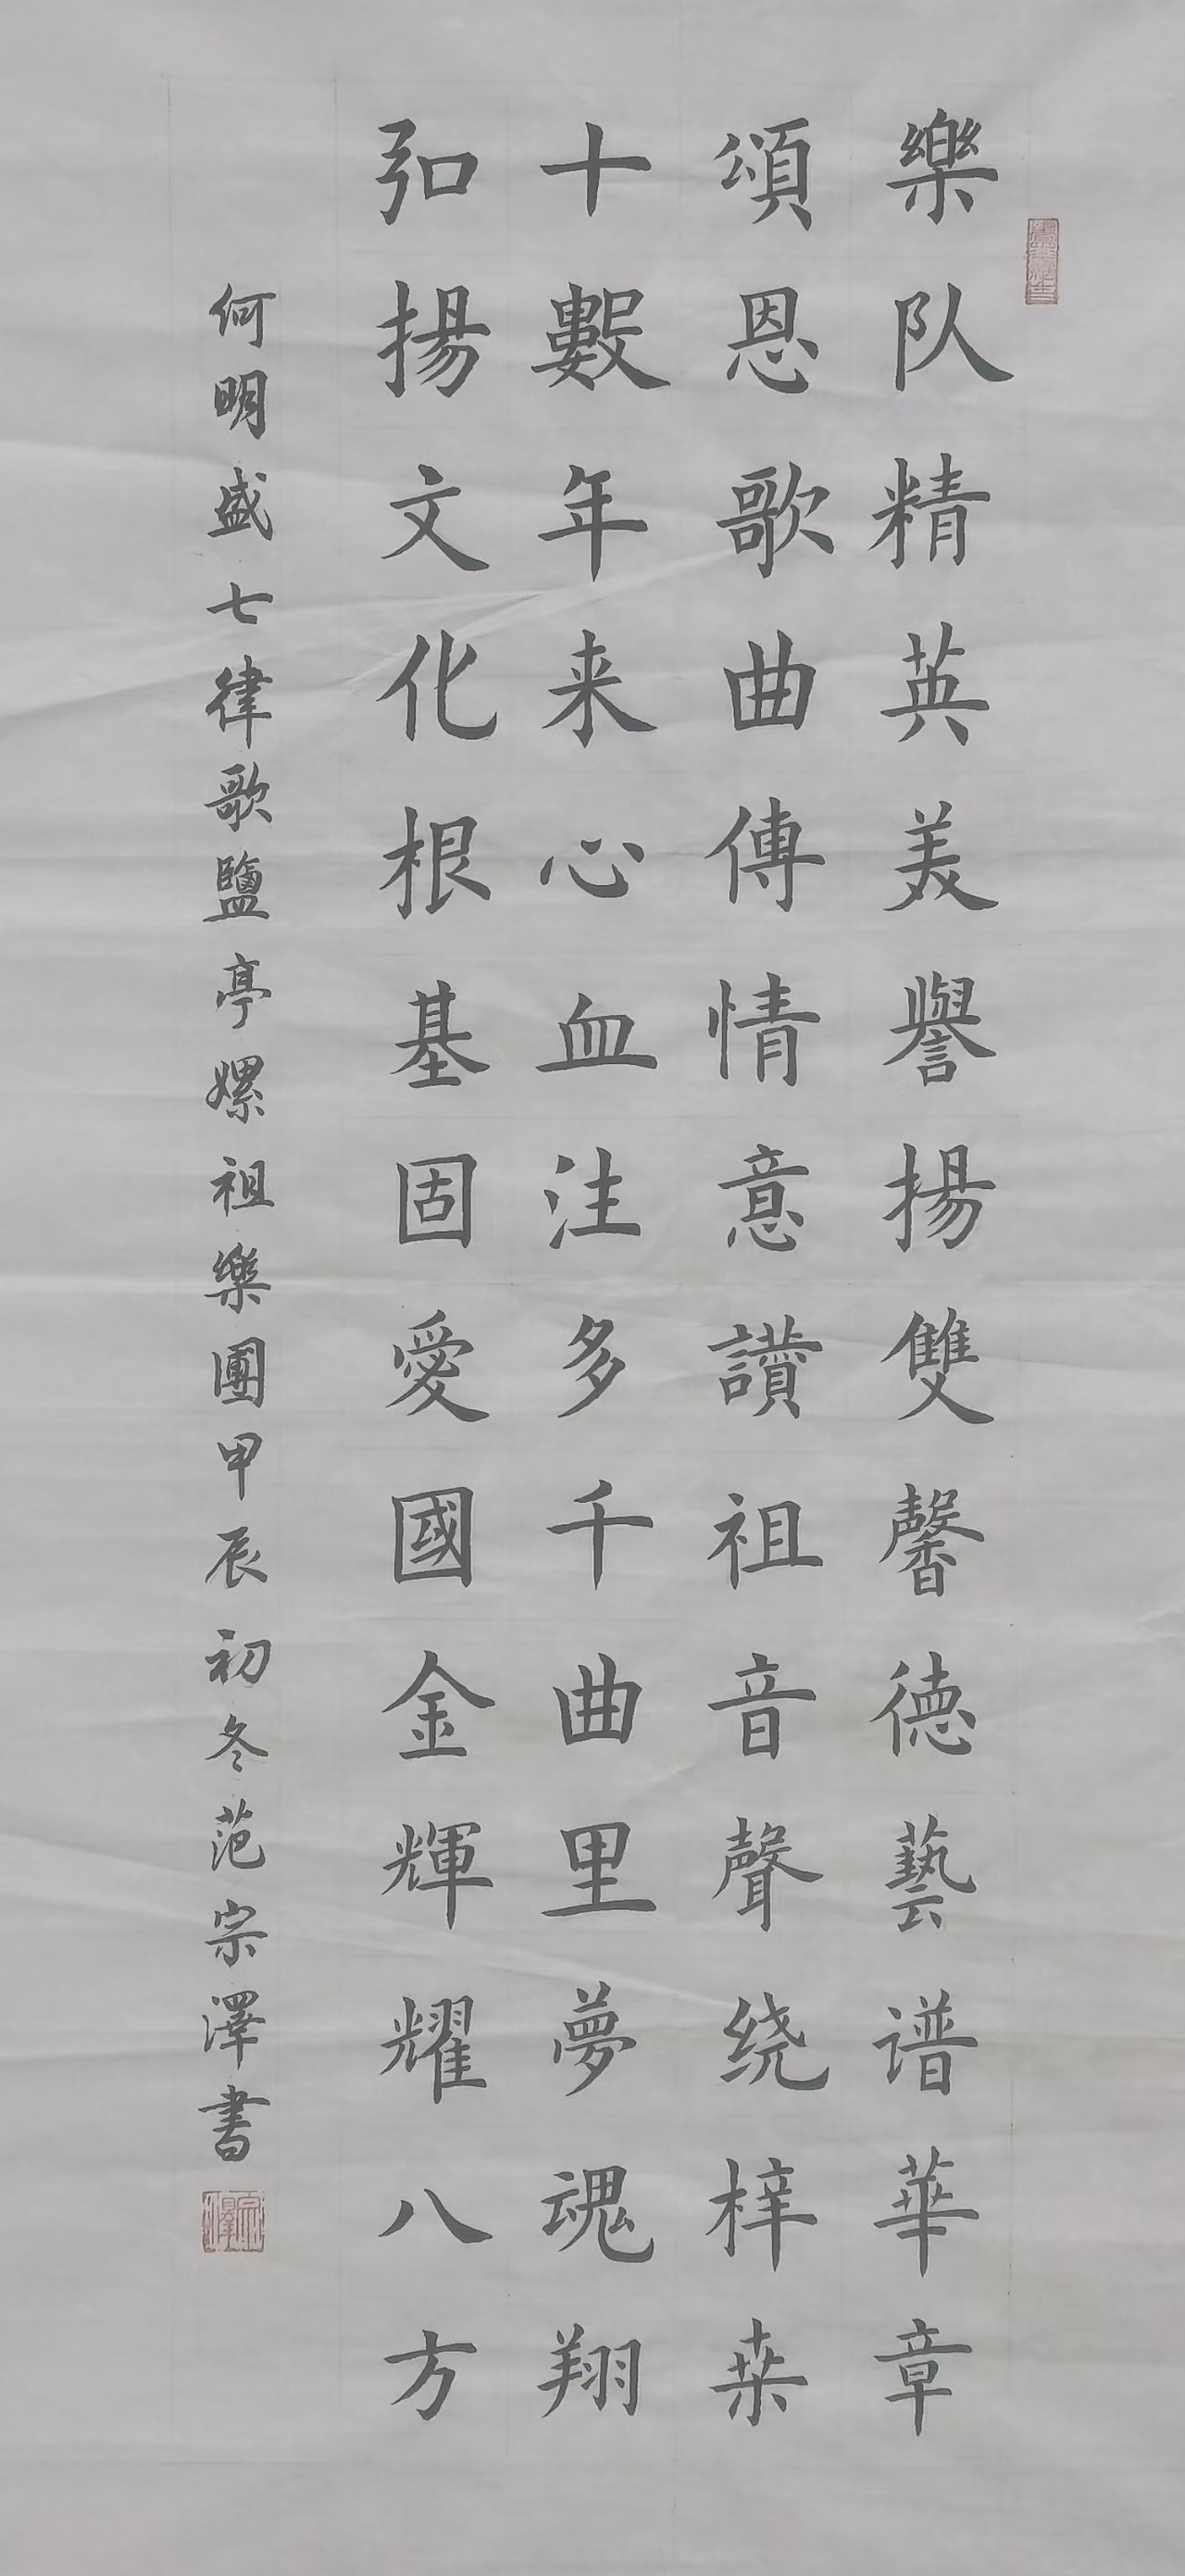 樂队精英美譽揚雙馨德藝谱華章
頌恩歌曲傳情意讃祖音聲绕梓桒
十數年来心血注多千曲里夢魂翔
弘揚文化根基固愛國金輝耀八方
何明盛七律歌鹽亭嫘祖樂團甲辰初冬范宗澤書